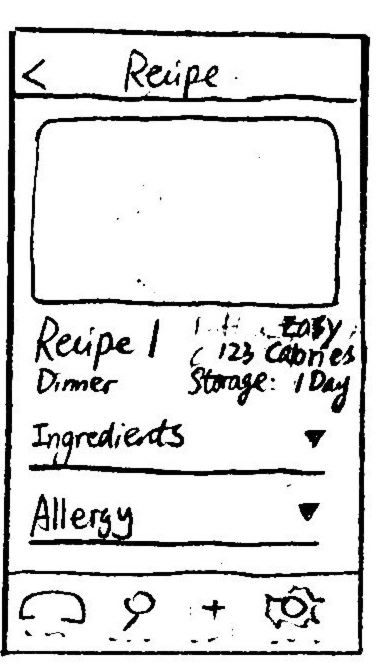 < Recipe
Recipe 1
Easy
123 Calories
Dinner
Storage: 1 Day
Ingredients ▼
Allergy ▼
+